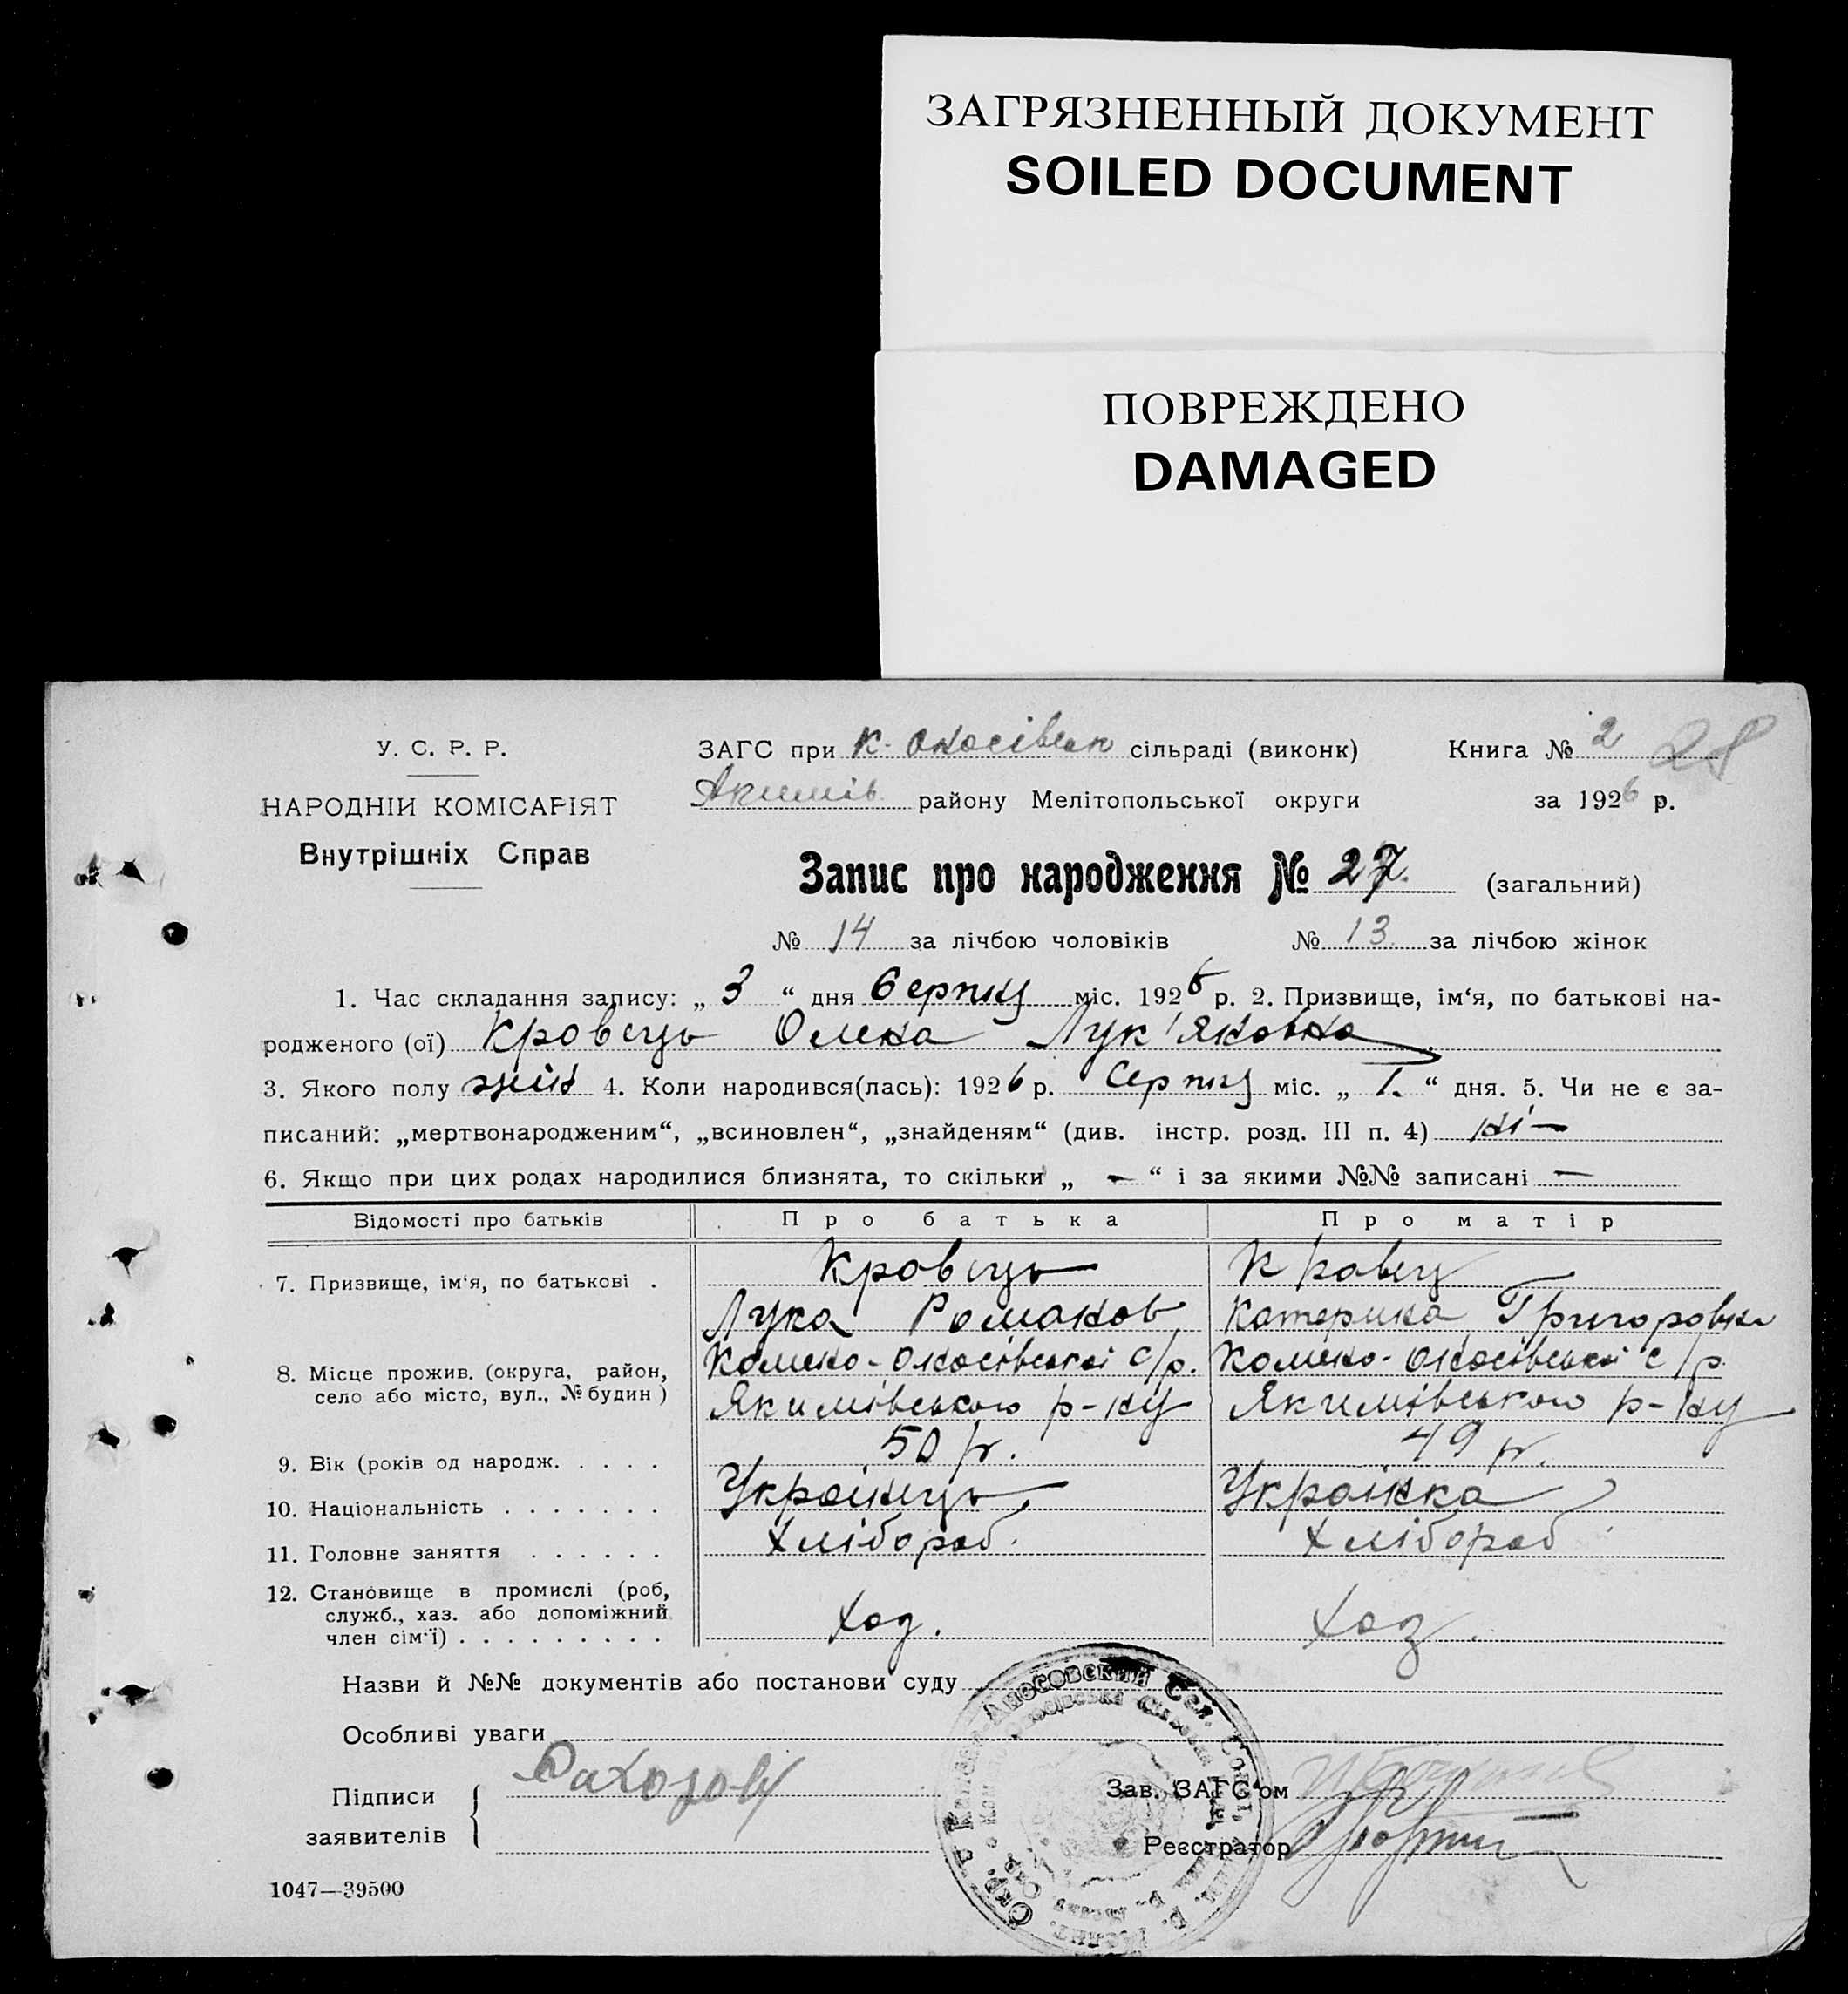 ЗАГРЯЗНЕННЫЙ ДОКУМЕНТ
SOILED DOCUMENT
ПОВРЕЖДЕНО
DAMAGED
У. С. Р. Р.
НАРОДНІЙ КОМІСАРІЯТ
Внутрішніх Справ
ЗАГС при К. Оносівськ сільраді (виконк) Книга № 2 28
Акимів районy Мелітопольської округи за 1926 р.
Запис про народження № 27. (загальний)
№ 14 за лічбою чоловіків № 13 за лічбою жінок
1. Час складання запису: „ 3 “ дня Серпня міс. 1926 р. 2. Призвище, ім‘я, по батькові на-
родженого (ої) Кровець Олена Лук'яновна
3. Якого полу жін 4. Коли народився(лась): 1926 р. Серпня міс. „ 1. “ дня. 5. Чи не є за-
писаний: „мертвонародженим“, „всиновлен“, „знайденям“ (див. інстр. розд. III п. 4) ні —
6. Якщо при цих родах народилися близнята, то скільки „ — “ і за якими №№ записані —
Відомості про батьків Про батька Про матір
7. Призвище, ім‘я, по батькові . Кровець Кравец
Лука Романов Катерина Григоровна
8. Місце прожив. (округа, район, село або місто, вул., № будин) Камено-Оносівської с/р. Камено-Оносівської с/р.
Якимівського р-ну Якимівського р-ну
9. Вік (років од народж. . . . . 50 р. 49 р.
10. Національність . . . . . . . Українець Українка
11. Головне заняття . . . . . . Хлібороб. Хлібороб
12. Становище в промислі (роб, служб., хаз. або допоміжний член сім‘ї) . . . . . . . . . Хаз. Хаз.
Назви й №№ документів або постанови суду
Особливі уваги
Підписи
заявителів
Зав. ЗАГС‘ом
Реєстратор
1047—39500